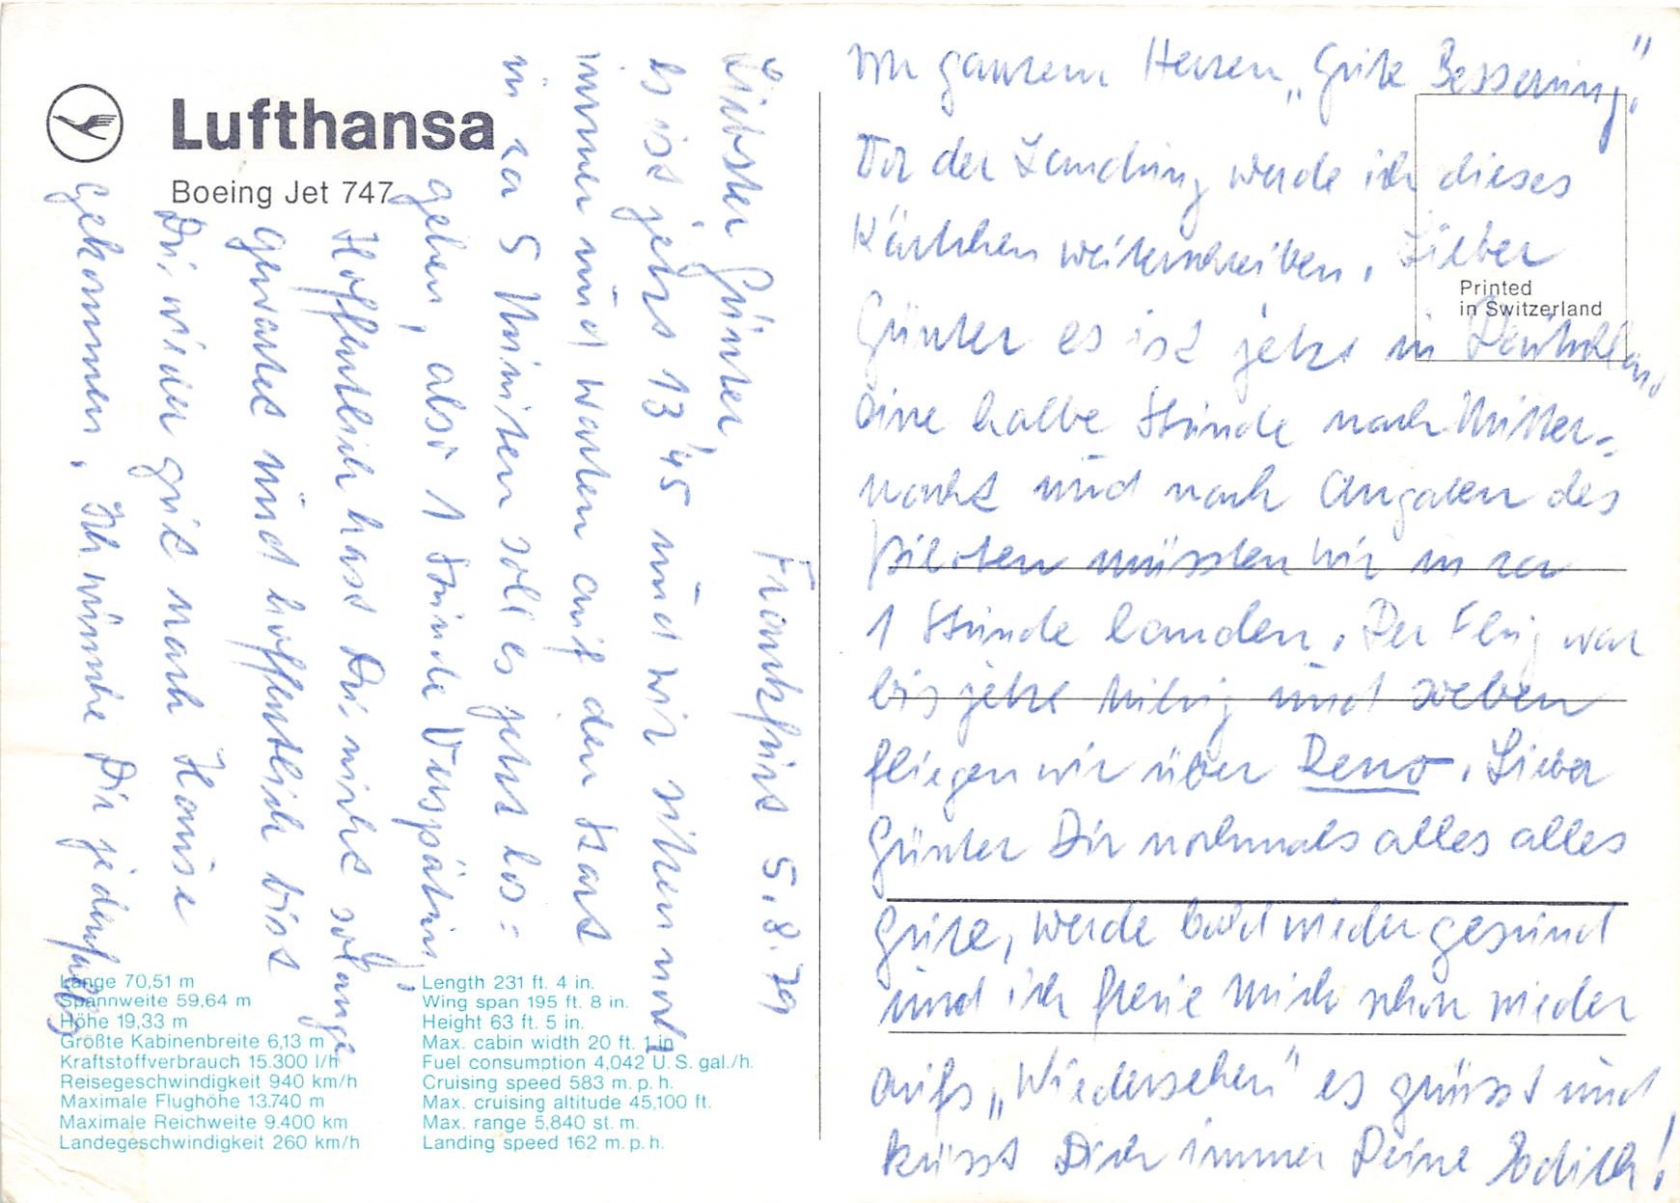 Lufthansa
Boeing Jet 747
Frankfurt 5.8.79
Liebster Günter,
es ist jetzt 13'45 und wir sitzen noch
immer und warten auf den Start
in za 5 Minuten soll es jetzt los=
gehen, also 1 Stunde Verspätung
Hoffentlich hast Du nicht solange
gewartet und hoffentlich bist
Du wieder gut nach Hause
gekommen. Ich wünsche Dir jedenfalls
von ganzem Herzen „Gute Besserung."
Vor der Landung werde ich dieses
Kärtchen weiterschreiben. Lieber
Günter es ist jetzt in Deutschland
eine halbe Stunde nach Mitter=
nacht und nach Angaben des
Piloten müssten wir in za
1 Stunde landen. Der Flug war
bis jetzt ruhig und soeben
fliegen wir über Reno. Lieber
Günter Dir nochmals alles alles
Gute, werde bald wieder gesund
und ich freue mich schon wieder
aufs „Wiedersehen" es grüsst und
küsst Dich immer Deine
Printed
in Switzerland
Länge 70,51 m
Spannweite 59,64 m
Höhe 19,33 m
Größte Kabinenbreite 6,13 m
Kraftstoffverbrauch 15.300 l/h
Reisegeschwindigkeit 940 km/h
Maximale Flughöhe 13.740 m
Maximale Reichweite 9.400 km
Landegeschwindigkeit 260 km/h
Length 231 ft. 4 in.
Wing span 195 ft. 8 in.
Height 63 ft. 5 in.
Max. cabin width 20 ft. 1 in
Fuel consumption 4,042 U.S. gal./h.
Cruising speed 583 m.p.h.
Max. cruising altitude 45,100 ft.
Max. range 5,840 st. m.
Landing speed 162 m.p.h.